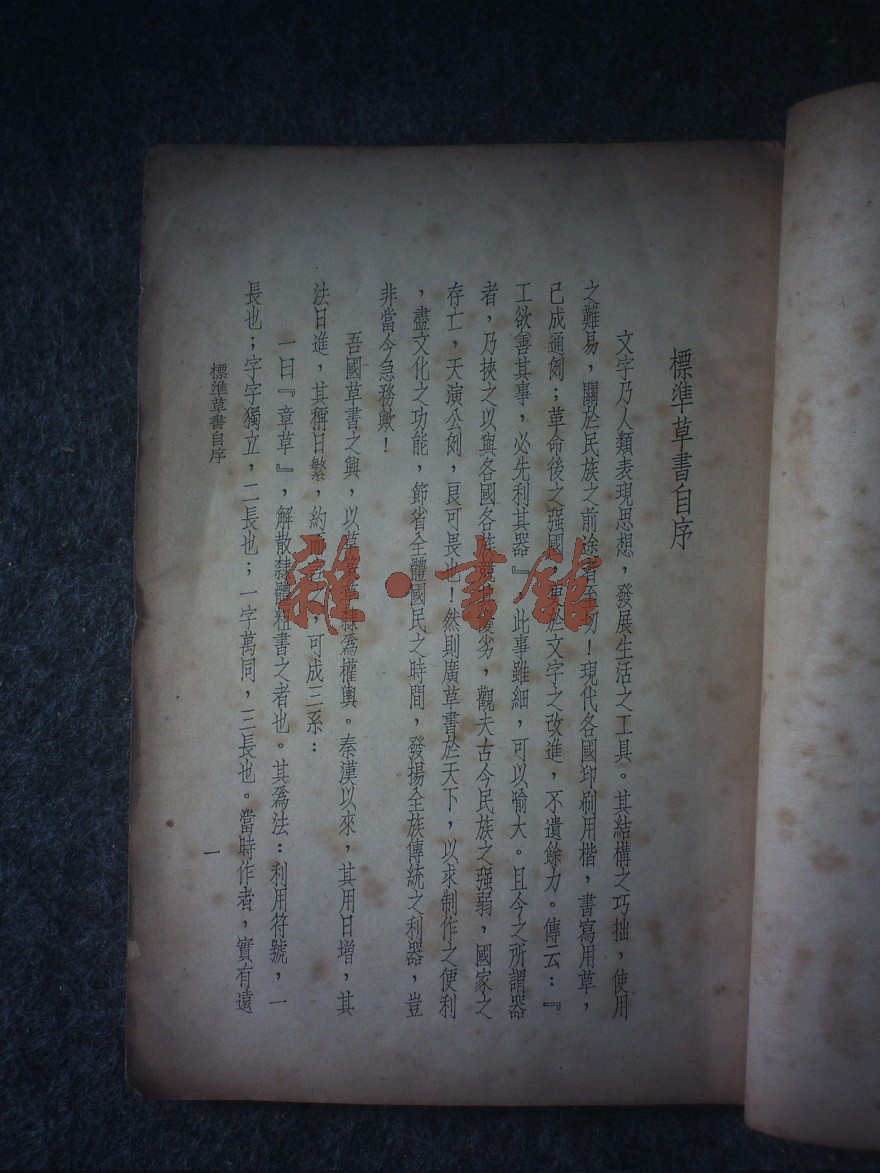 標準草書自序
文字乃人類表現思想，發展生活之工具。其結構之巧拙，使用
之難易，關於民族之前途者至切！現代各國印刷用楷，書寫用草，
已成通例；革命後之强國，更於文字之改進，不遺餘力。傳云：『
工欲善其事，必先利其器』，此事雖細，可以喻大。且今之所謂器
者，乃挾之以與各國各族競其優劣，觀夫古今民族之强弱，國家之
存亡，天演公例，良可畏也！然則廣草書於天下，以求制作之便利
，盡文化之功能，節省全體國民之時間，發揚全族傳統之利器，豈
非當今急務歟！
吾國草書之興，以草隸爲權輿。秦漢以來，其用日增，其
法日進，其稱日繁，約而，可成三系：
一曰『章草』，解散隸體粗書之者也。其爲法：利用符號，一
長也；字字獨立，二長也；一字萬同，三長也。當時作者，實有遠
標準草書自序
一
雜·書館